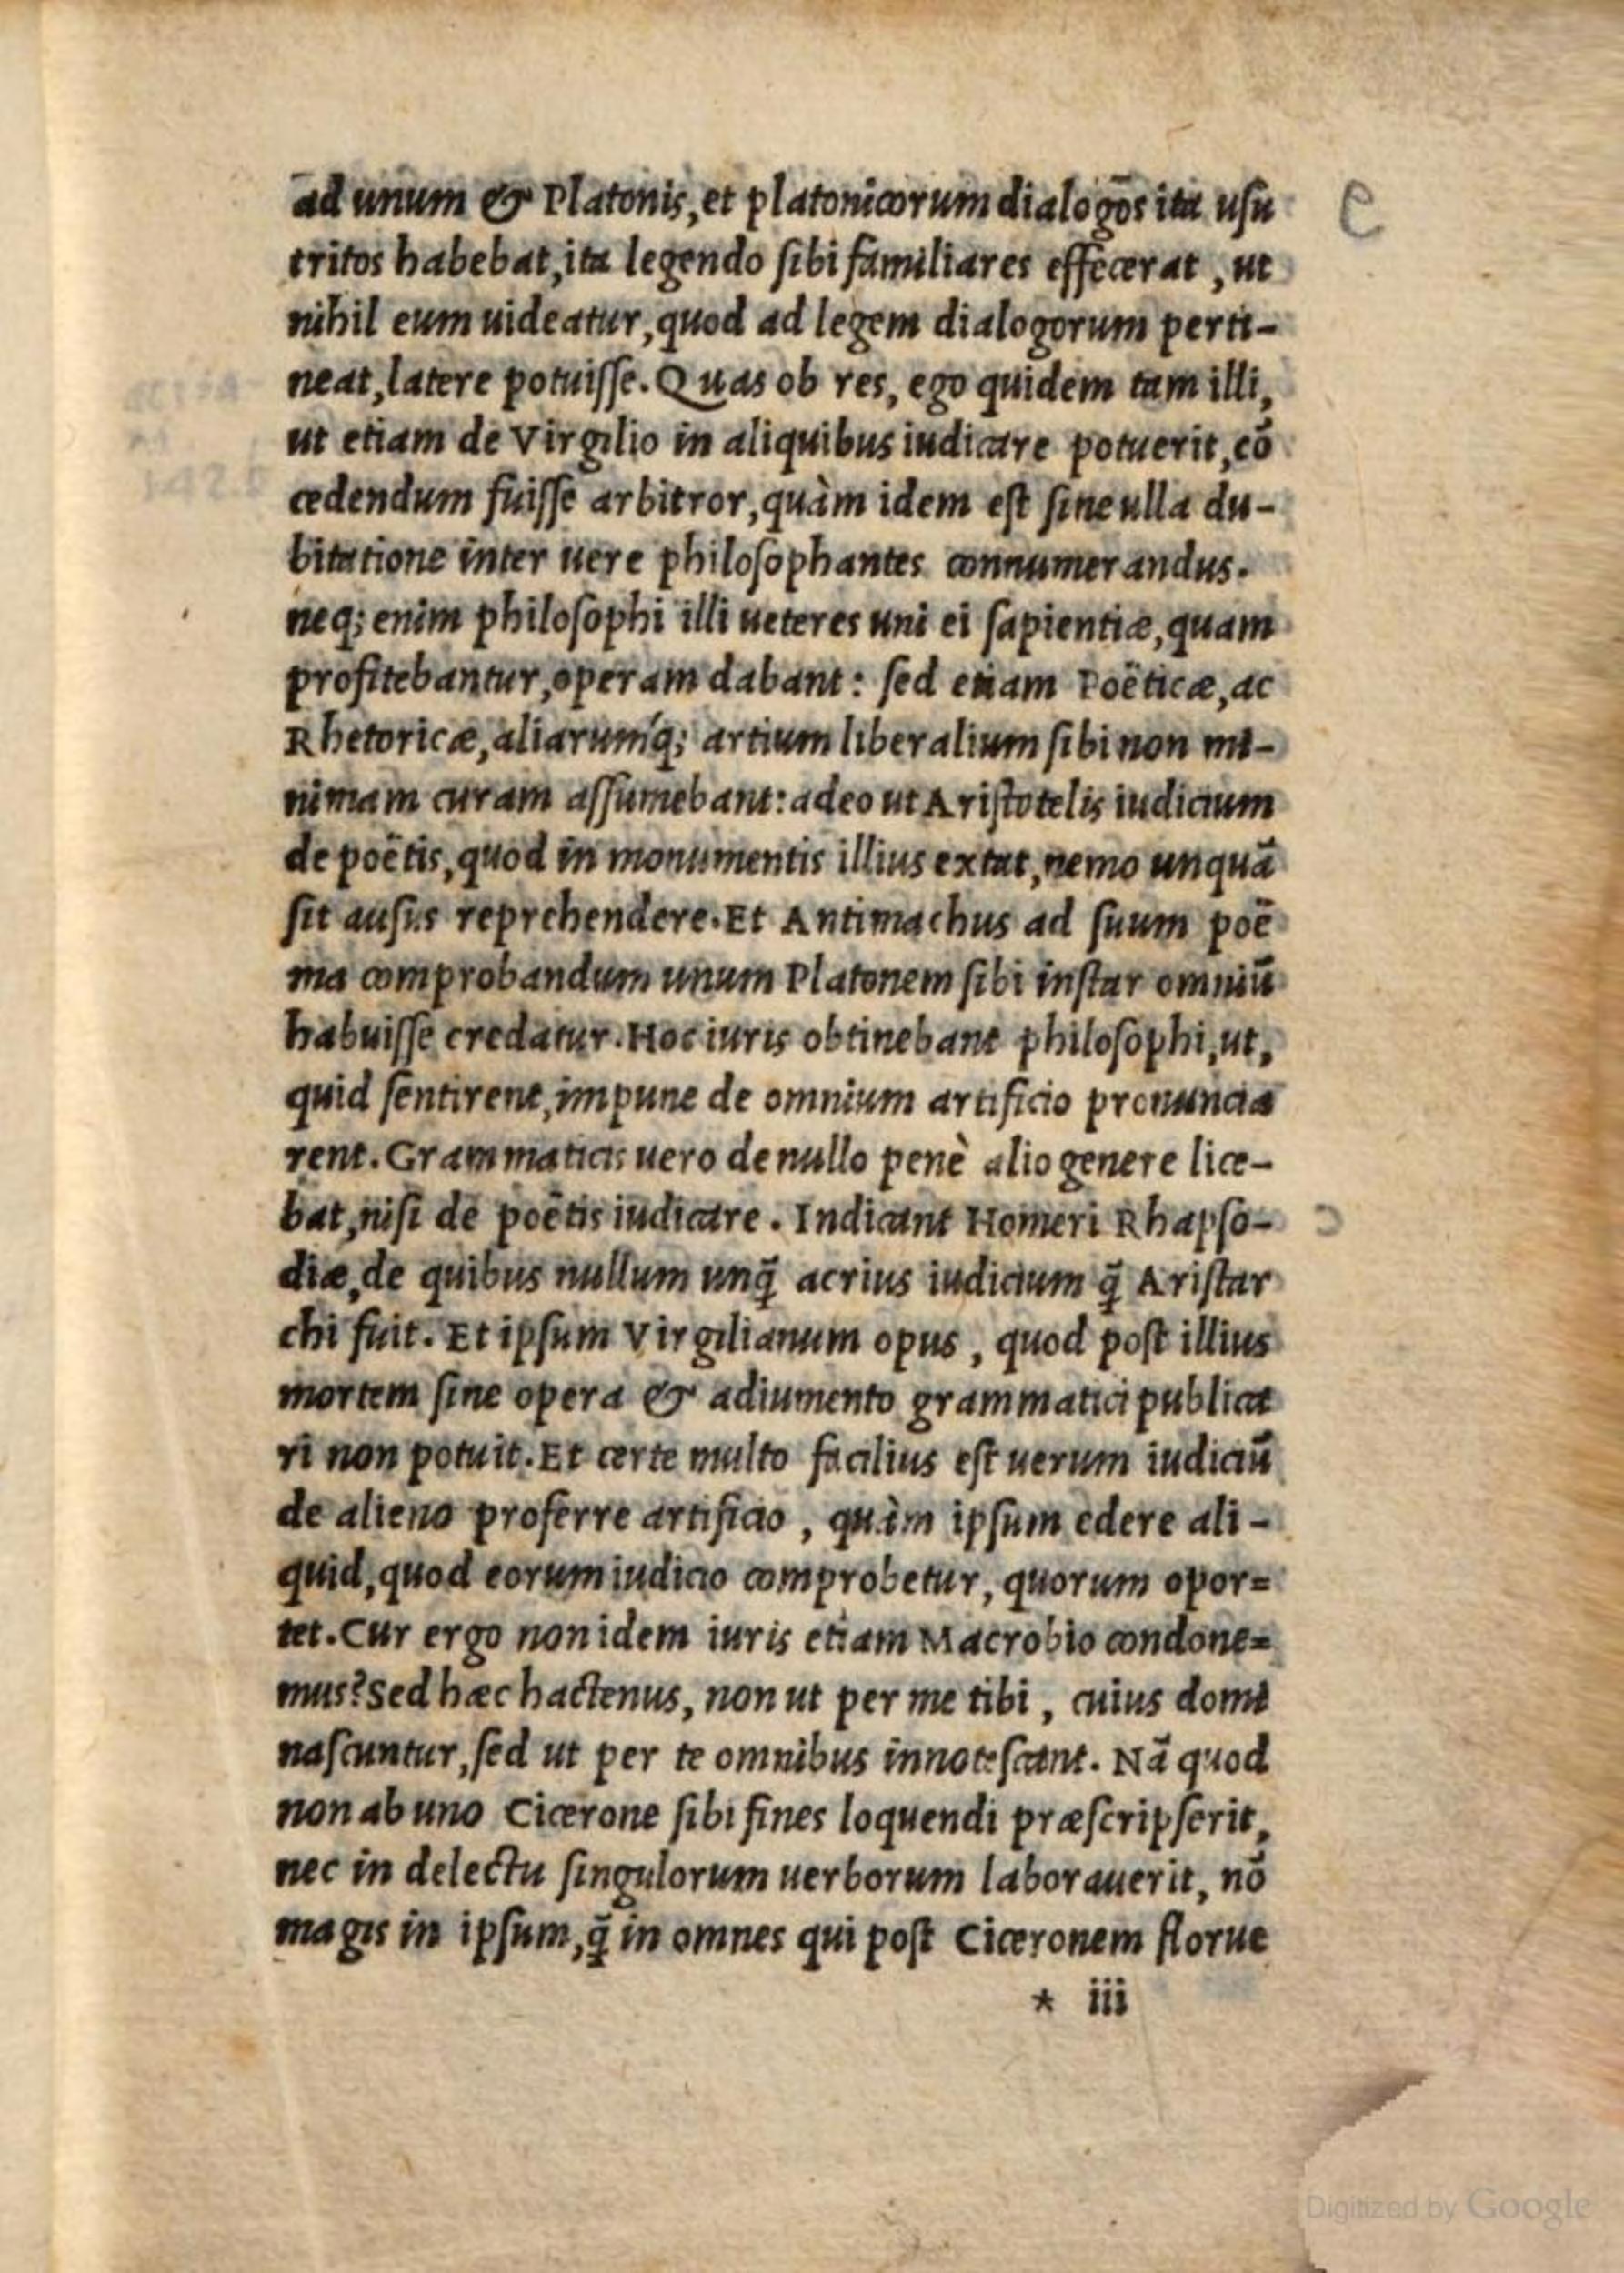 ad unum & Platonis, et platonicorum dialogōs ita usu
tritos habebat, ita legendo sibi familiares effecerat, ut
nihil eum uideatur, quod ad legem dialogorum perti-
neat, latere potuisse. Quas ob res, ego quidem tam illi,
ut etiam de Virgilio in aliquibus iudicare potuerit, cō
cedendum fuisse arbitror, quàm idem est sine ulla du-
bitatione inter uere philosophantes connumerandus.
neq; enim philosophi illi ueteres uni ei sapientiæ, quam
profitebantur, operam dabant: sed etiam Poëticæ, ac
Rhetoricæ, aliarumq́; artium liberalium sibi non mi-
nimam curam assumebant: adeo ut Aristotelis iudicium
de poëtis, quod in monumentis illius extat, nemo unquā
sit ausus reprehendere. Et Antimachus ad suum poë
ma comprobandum unum Platonem sibi instar omniū
habuisse credatur. Hoc iuris obtinebant philosophi, ut,
quid sentirent, impune de omnium artificio pronuncia
rent. Grammaticis uero de nullo penè alio genere lice-
bat, nisi de poëtis iudicare. Indicant Homeri Rhapso-
diæ, de quibus nullum unq̄ acrius iudicium q̄ Aristar
chi fuit. Et ipsum Virgilianum opus, quod post illius
mortem sine opera & adiumento grammatici publica
ri non potuit. Et certe multo facilius est uerum iudiciū
de alieno proferre artificio, quàm ipsum edere ali-
quid, quod eorum iudicio comprobetur, quorum opor=
tet. Cur ergo non idem iuris etiam Macrobio condone=
mus? Sed hæc hactenus, non ut per me tibi, cuius domi
nascuntur, sed ut per te omnibus innotescant. Nā quod
non ab uno Cicerone sibi fines loquendi præscripserit,
nec in delectu singulorum uerborum laborauerit, nō
magis in ipsum, q̄ in omnes qui post Ciceronem florue
* iii
Digitized by Google